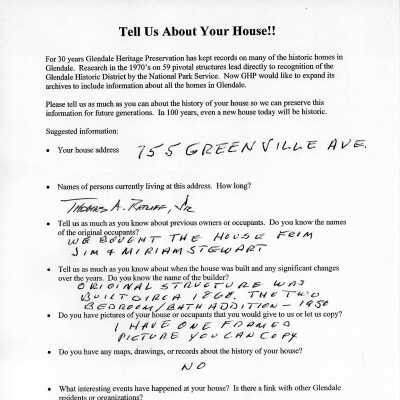 Tell Us About Your House!!
For 30 years Glendale Heritage Preservation has kept records on many of the historic homes in
Glendale. Research in the 1970's on 59 pivotal structures lead directly to recognition of the
Glendale Historic District by the National Park Service. Now GHP would like to expand its
archives to include information about all the homes in Glendale.
Please tell us as much as you can about the history of your house so we can preserve this
information for future generations. In 100 years, even a new house today will be historic.
Suggested information:
• Your house address 755 GREENVILLE AVE.
• Names of persons currently living at this address. How long?
THOMAS A. RATLIFF, JR
• Tell us as much as you know about previous owners or occupants. Do you know the names
of the original occupants?
WE BOUGHT THE HOUSE FROM
JIM & MIRIAM STEWART
• Tell us as much as you know about when the house was built and any significant changes
over the years. Do you know the name of the builder?
ORIGINAL STRUCTURE WAS
BUILT CIRCA 1860. THE TWO
BEDROOM/BATH ADDITION - 1950
• Do you have pictures of your house or occupants that you would give to us or let us copy?
I HAVE ONE FRAMED
PICTURE YOU CAN COPY
• Do you have any maps, drawings, or records about the history of your house?
NO
• What interesting events have happened at your house? Is there a link with other Glendale
residents or organizations?